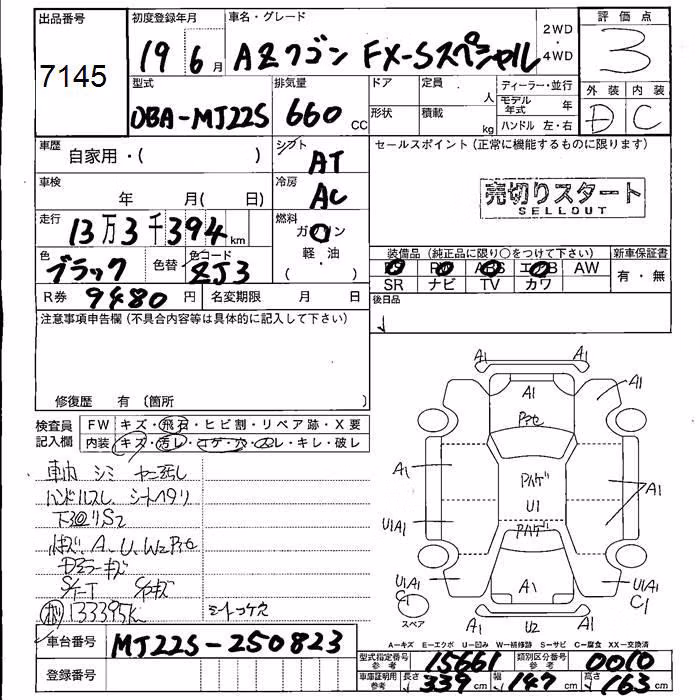 出品番号
7145
初度登録年月
19 6 月
車名・グレード
AZワゴン FX-Sスペシャル
2WD
・
4WD
評価点
3
外装 内装
D C
型式
DBA-MJ22S
排気量
660 CC
ドア
形状
定員
人
積載
kg
ディーラー・並行
モデル年式 年
ハンドル 左・右
車歴
自家用・( )
シフト
AT
セールスポイント (正常に機能するものに限ります)
売切りスタート
SELLOUT
車検
年 月( 日)
冷房
AC
走行
13万3千394km
燃料
ガソリン
軽・油
( )
色
ブラック
色替
色コード
ZJ3
装備品 (純正品に限り○をつけて下さい)
エアB AW
SR ナビ TV カワ
新車保証書
有・無
R券 9480 円
名変期限 月 日
後日品
注意事項申告欄 (不具合内容等は具体的に記入して下さい)
修復歴 有 (箇所
検査員
記入欄
FW キズ・飛石・ヒビ割・リペア跡・X要
内装 キズ・汚レ・コゲ・穴・スレ・キレ・破レ
シミ
ハンドルスレ シートヘタリ
下廻りS2
A、U、W2
キズ
133395K
シートコゲ穴
車台番号
MJ22S-250823
登録番号
A1 A1
A1
A1
A1
A1
U1
U1A1
A1
U1A1
C1
U1A1
C1
A1
スペア
A1 U2 A1
A=キズ E=エクボ U=凹み W=補修跡 S=サビ C=腐食 XX=交換済
型式指定番号
参考
15661
類別区分番号
参考
0010
車庫証明用
参考
長さ 339 cm 幅 147 cm 高さ 163 cm